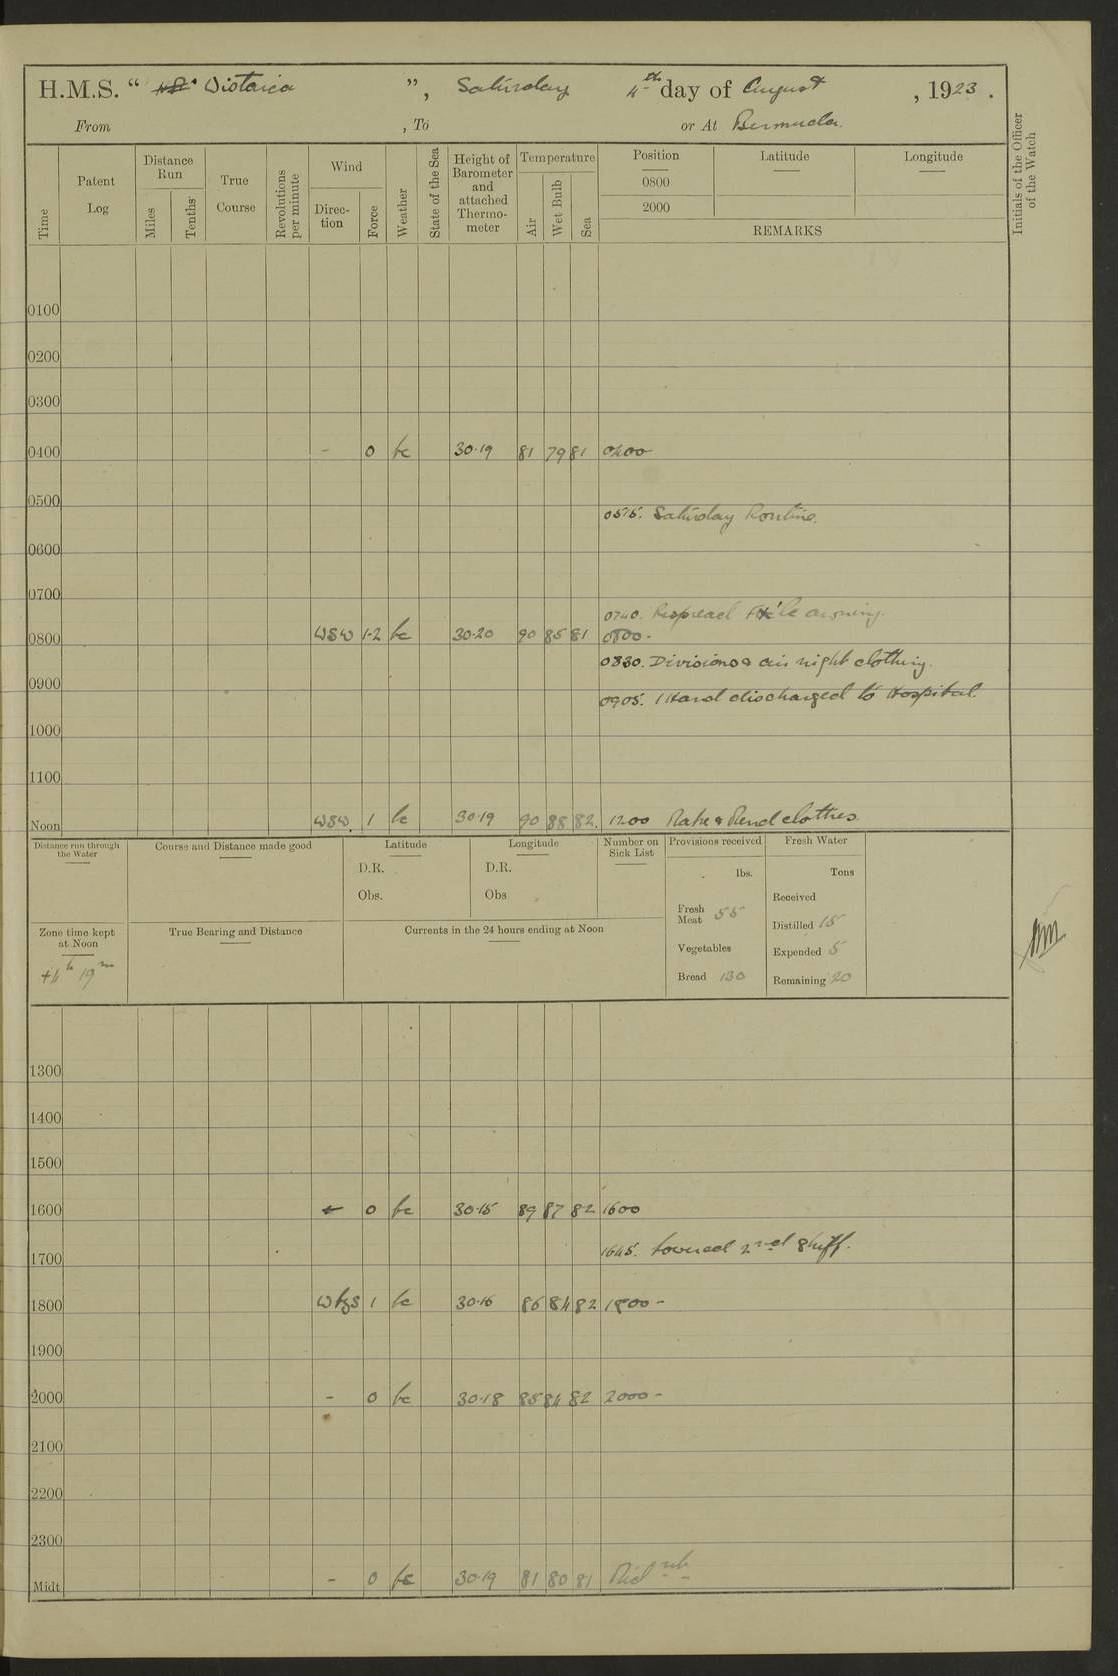 H.M.S. " Wistaria ", Saturday 4th day of August, 1923.
From , To or At Bermuda.
Time
Patent Log
Distance Run
Miles
Tenths
True Course
Revolutions per minute
Wind
Direction
Force
Weather
State of the Sea
Height of Barometer and attached Thermometer
Temperature
Air
Wet Bulb
Sea
Position Latitude Longitude
0800
2000
REMARKS
Initials of the Officer of the Watch
0100
0200
0300
0400 - 0 bc 30.19 81 79 81 0400
0500
0515. Saturday Routine.
0600
0700
0740. Respread Fx'le awning.
0800 WSW 1-2 bc 30.20 90 85 81 0800-
0830. Divisions & air night clothing.
0900
0905. 1 Hand discharged to Hospital.
1000
1100
Noon WSW. 1 bc 30.19 90 88 82. 1200 Make & Mend clothes
Distance run through the Water
Course and Distance made good
Latitude
D.R.
Obs.
Longitude
D.R.
Obs
Number on Sick List
Provisions received
lbs.
Fresh Meat 55
Vegetables
Bread 130
Fresh Water
Tons
Received
Distilled 15
Expended 5
Remaining 20
Zone time kept at Noon
+4h 19m
True Bearing and Distance
Currents in the 24 hours ending at Noon
1300
1400
1500
1600 0 bc 30.15 89 87 82 1600
1645. Lowered 2nd Skiff.
1700
1800 WbyS 1 bc 30.16 86 84 82 1800-
1900
2000 - 0 bc 30.18 85 84 82 2000-
2100
2200
2300
Midt - 0 bc 30.19 81 80 81 Midnt